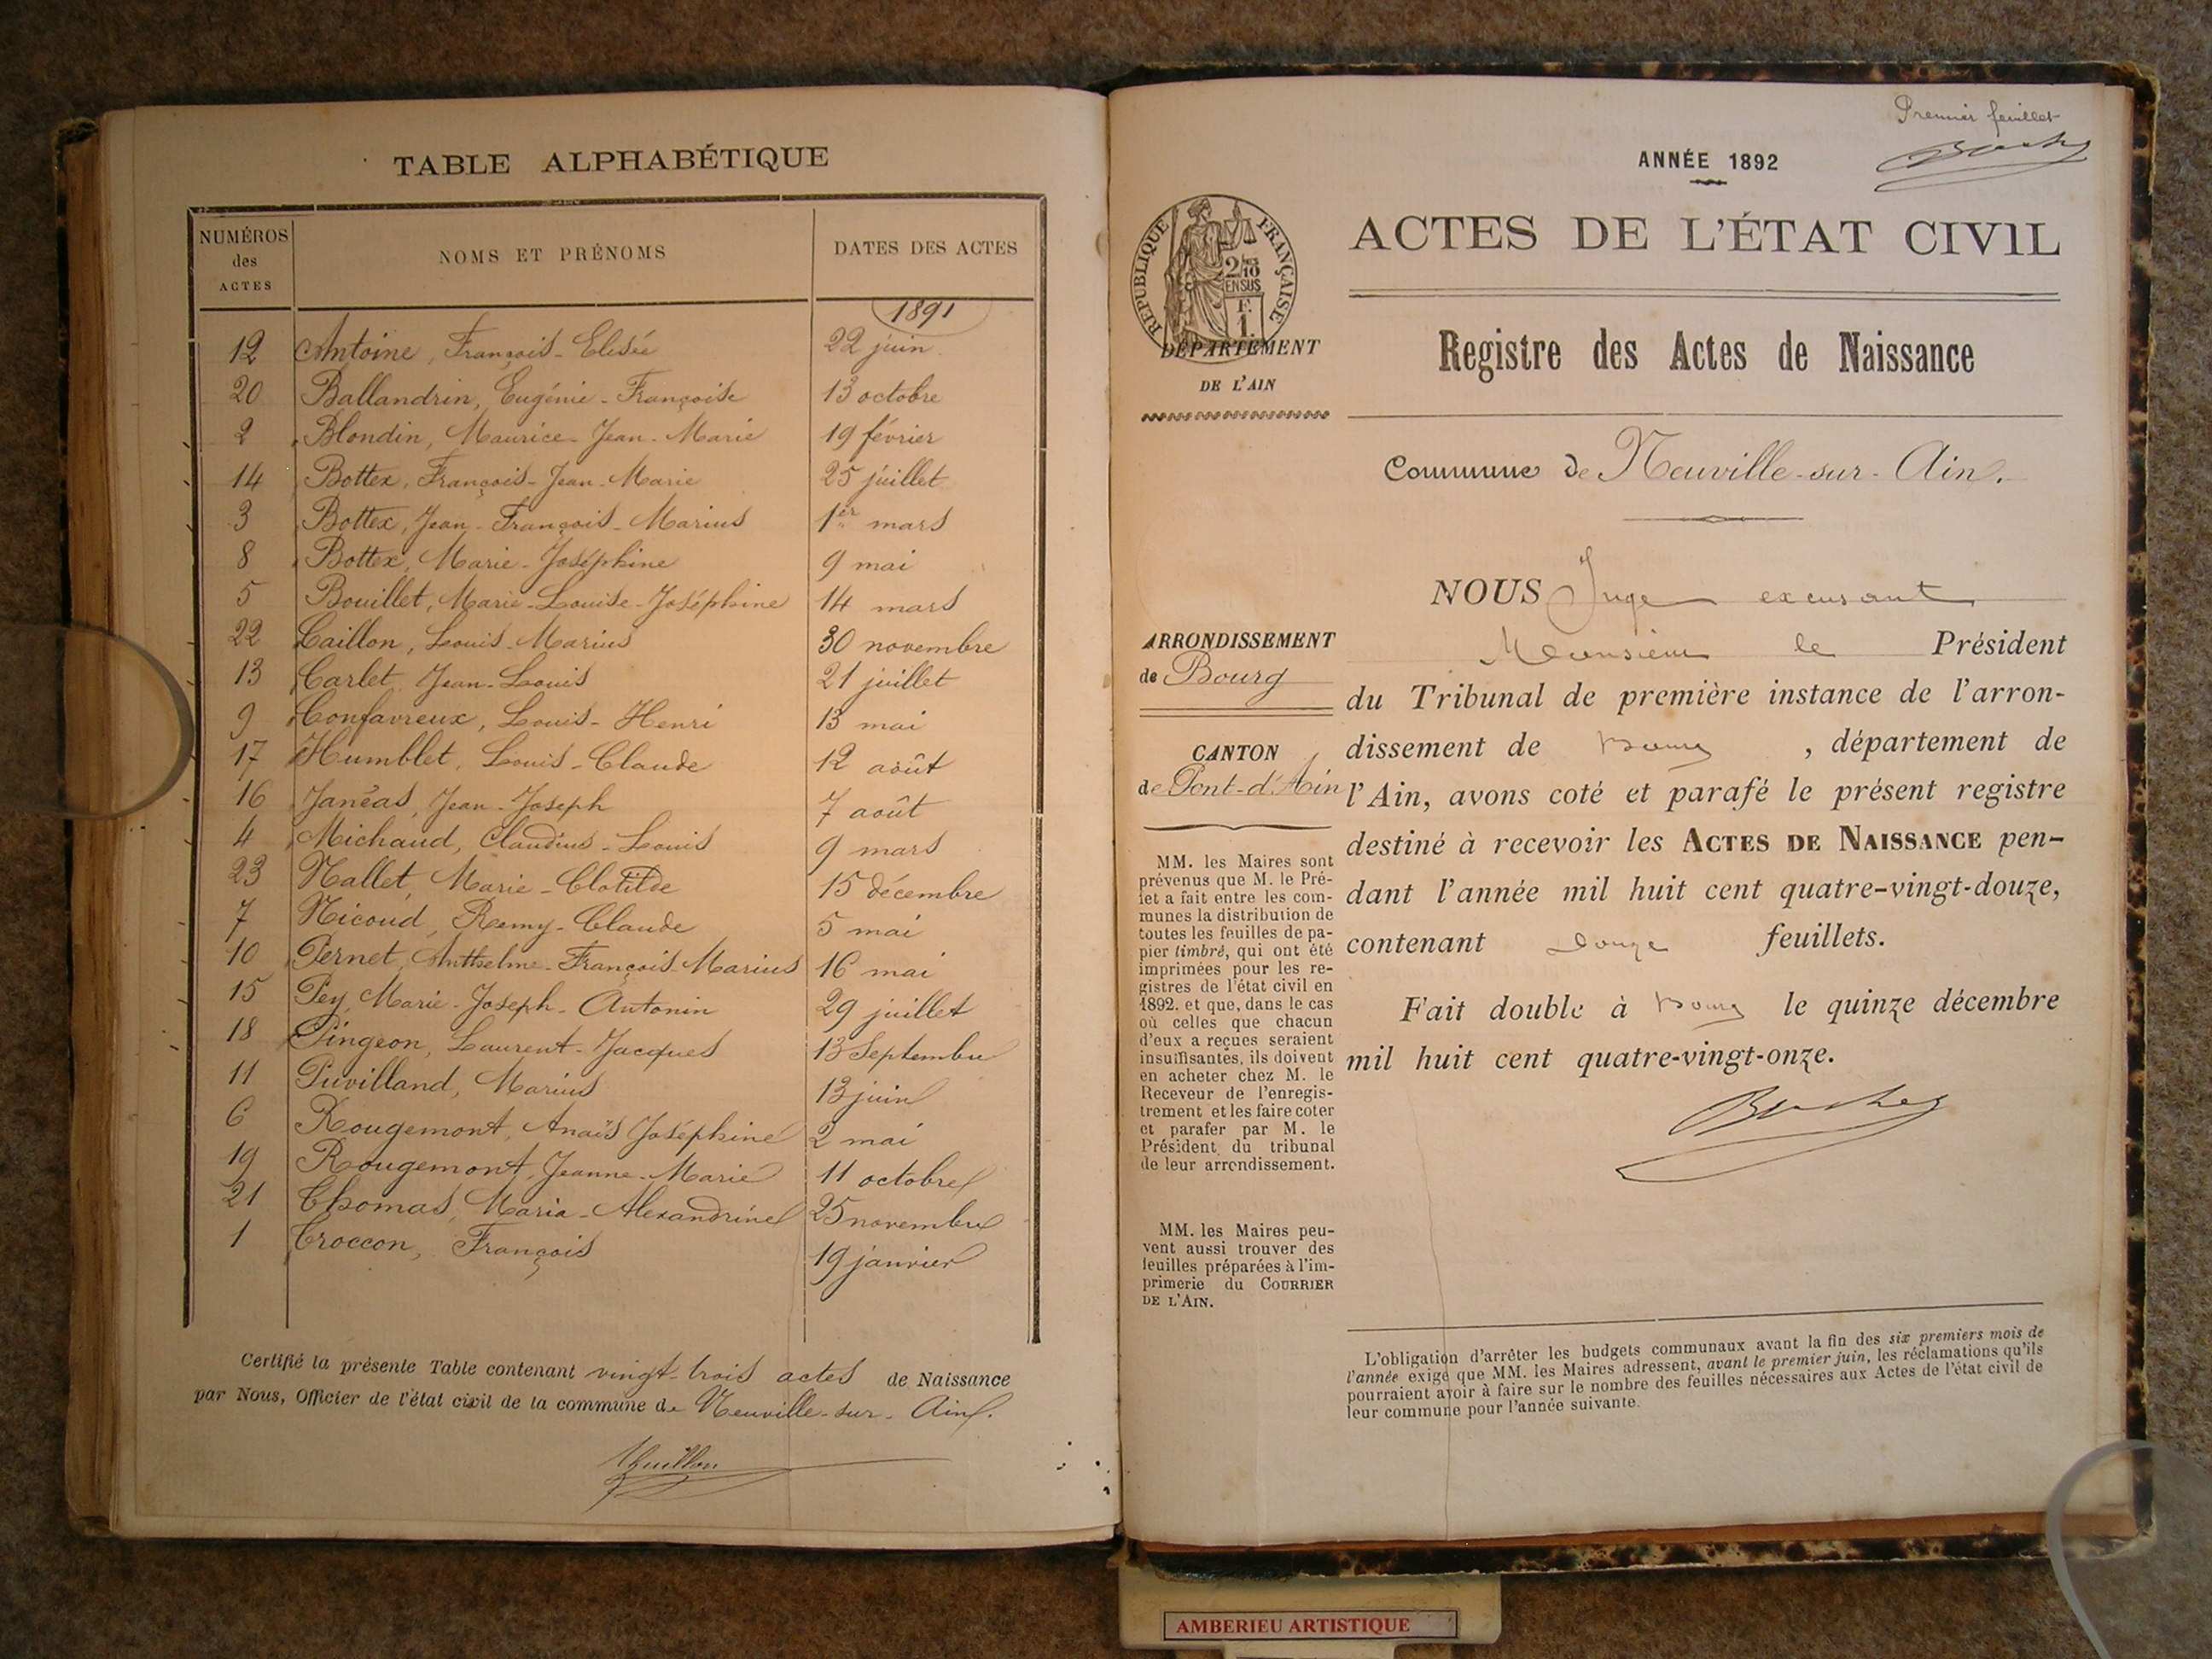 TABLE ALPHABÉTIQUE
NUMÉROS des ACTES NOMS ET PRÉNOMS DATES DES ACTES
1891
12 Antoine, François-Elisée 22 juin
20 Ballandrin, Eugénie-Françoise 13 octobre
2 Blondin, Maurice-Jean-Marie 19 février
14 Bottex, François-Jean-Marie 25 juillet
3 Bottex, Jean-François-Marius 1er mars
8 Bottex, Marie-Joséphine 9 mai
5 Bouillet, Marie-Louise-Joséphine 14 mars
22 Caillon, Louis-Marius 30 novembre
13 Carlet Jean-Louis 21 juillet
9 Confavreux, Louis-Henri 13 mai
17 Humblet, Louis-Claude 12 août
16 Janéas, Jean-Joseph 7 août
4 Michaud, Claudius-Louis 9 mars
23 Nallet, Marie-Clotilde 15 décembre
7 Nicoud, Remy-Claude 5 mai
10 Pernet, Anthelme-François-Marius 16 mai
15 Pey, Marie-Joseph-Antonin 29 juillet
18 Pingeon, Laurent-Jacques 13 Septembre
11 Puvilland, Marius 13 juin
6 Rougemont, Anaïs Joséphine 2 mai
19 Rougemont, Jeanne-Marie 11 octobre
21 Thomas, Maria-Alexandrine 25 novembre
1 Troccon, François 19 janvier
Certifié la présente Table contenant vingt-trois actes de Naissance
par Nous, Officier de l'état civil de la commune de Neuville-sur-Ain.
Thuillon
Premier feuillet
ANNÉE 1892
RÉPUBLIQUE FRANÇAISE
2/10 EN SUS
F. 1.
ACTES DE L'ÉTAT CIVIL
DÉPARTEMENT
DE L'AIN
Registre des Actes de Naissance
Commune de Neuville-sur-Ain.
ARRONDISSEMENT
de Bourg
CANTON
de Pont-d'Ain
MM. les Maires sont
prévenus que M. le Pré-
fet a fait entre les com-
munes la distribution de
toutes les feuilles de pa-
pier timbré, qui ont été
imprimées pour les re-
gistres de l'état civil en
1892, et que, dans le cas
où celles que chacun
d'eux a reçues seraient
insuffisantes, ils doivent
en acheter chez M. le
Receveur de l'enregis-
trement et les faire coter
et parafer par M. le
Président du tribunal
de leur arrondissement.
MM. les Maires peu-
vent aussi trouver des
feuilles préparées à l'im-
primerie du COURRIER
DE L'AIN.
NOUS Juge excusant
Monsieur le Président
du Tribunal de première instance de l'arron-
dissement de Bourg, département de
l'Ain, avons coté et parafé le présent registre
destiné à recevoir les ACTES DE NAISSANCE pen-
dant l'année mil huit cent quatre-vingt-douze,
contenant douze feuillets.
Fait double à Bourg le quinze décembre
mil huit cent quatre-vingt-onze.
L'obligation d'arrêter les budgets communaux avant la fin des six premiers mois de
l'année exige que MM. les Maires adressent, avant le premier juin, les réclamations qu'ils
pourraient avoir à faire sur le nombre des feuilles nécessaires aux Actes de l'état civil de
leur commune pour l'année suivante.
AMBERIEU ARTISTIQUE